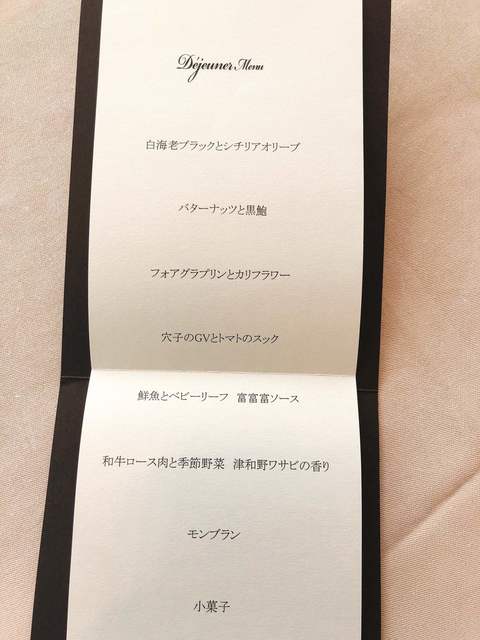 Déjeuner Menu
白海老ブラックとシチリアオリーブ
バターナッツと黒鮑
フォアグラプリンとカリフラワー
穴子のGVとトマトのスック
鮮魚とベビーリーフ 富富富ソース
和牛ロース肉と季節野菜 津和野ワサビの香り
モンブラン
小菓子